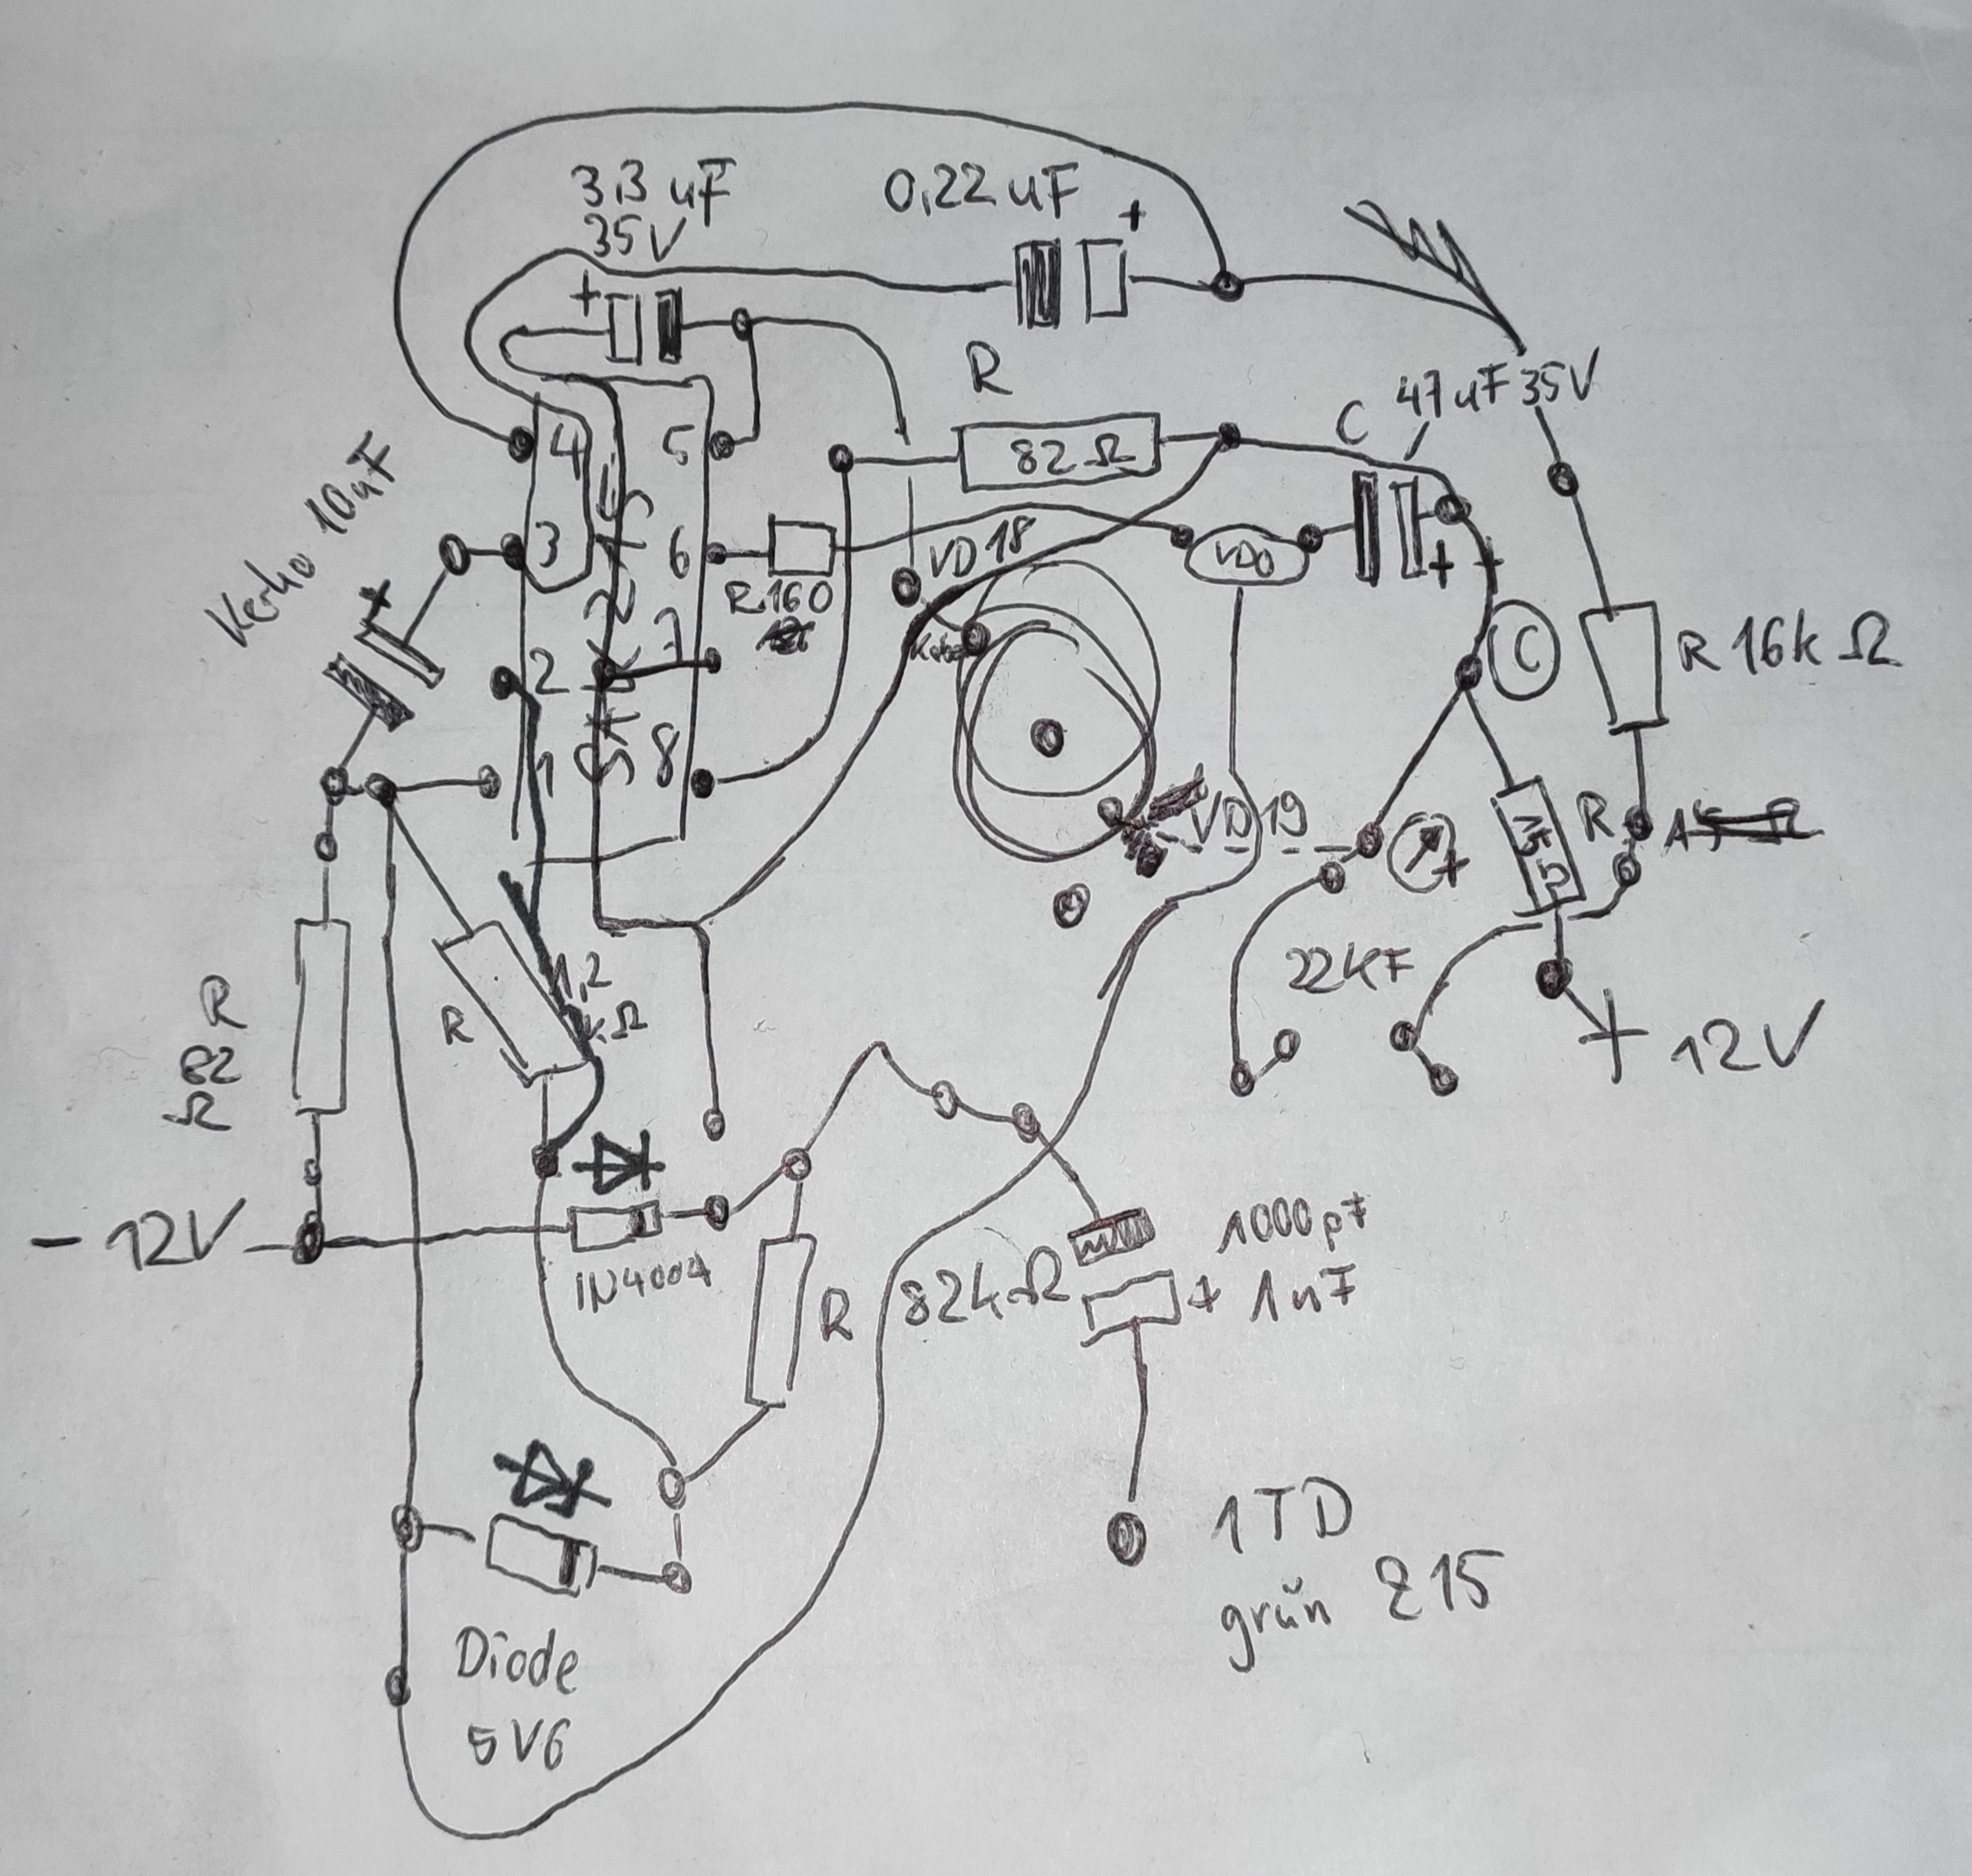 3,3 uF
35V
0,22 uF
+
+
R
47 uF 35V
C
4
5
82 Ω
Kerko 10uF
3
6
VD 18
VDO
+
+
+
R 160
C
R 16k Ω
2
7
1
8
VD 19
R
15 Ω
+
22KF
1,2
kΩ
R
R
82
Ω
+ 12V
- 12V
1N4004
R
82kΩ
1000pF
+ 1nF
1TD
grün 215
Diode
5V6